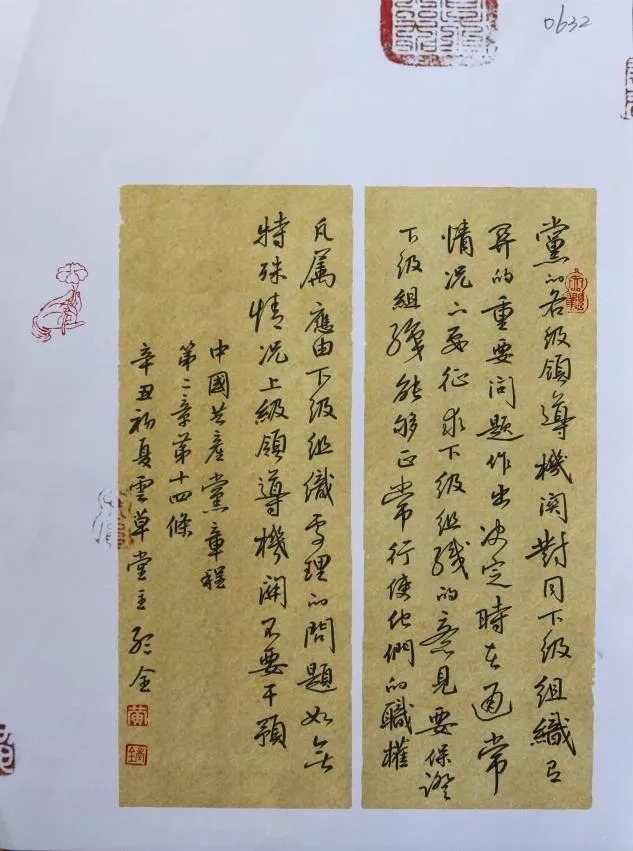 0632
黨的各級領導機関對同下級組織有
関的重要问題作出决定時在通常
情况下要征求下级组织的意見要保證
下级組織能够正常行使他們的職權
凡属應由下级组織处理的問題如無
特殊情况上級領導機関不要干預
中國共産黨章程
第二章第十四條
辛丑初夏雲草堂主
金
黄